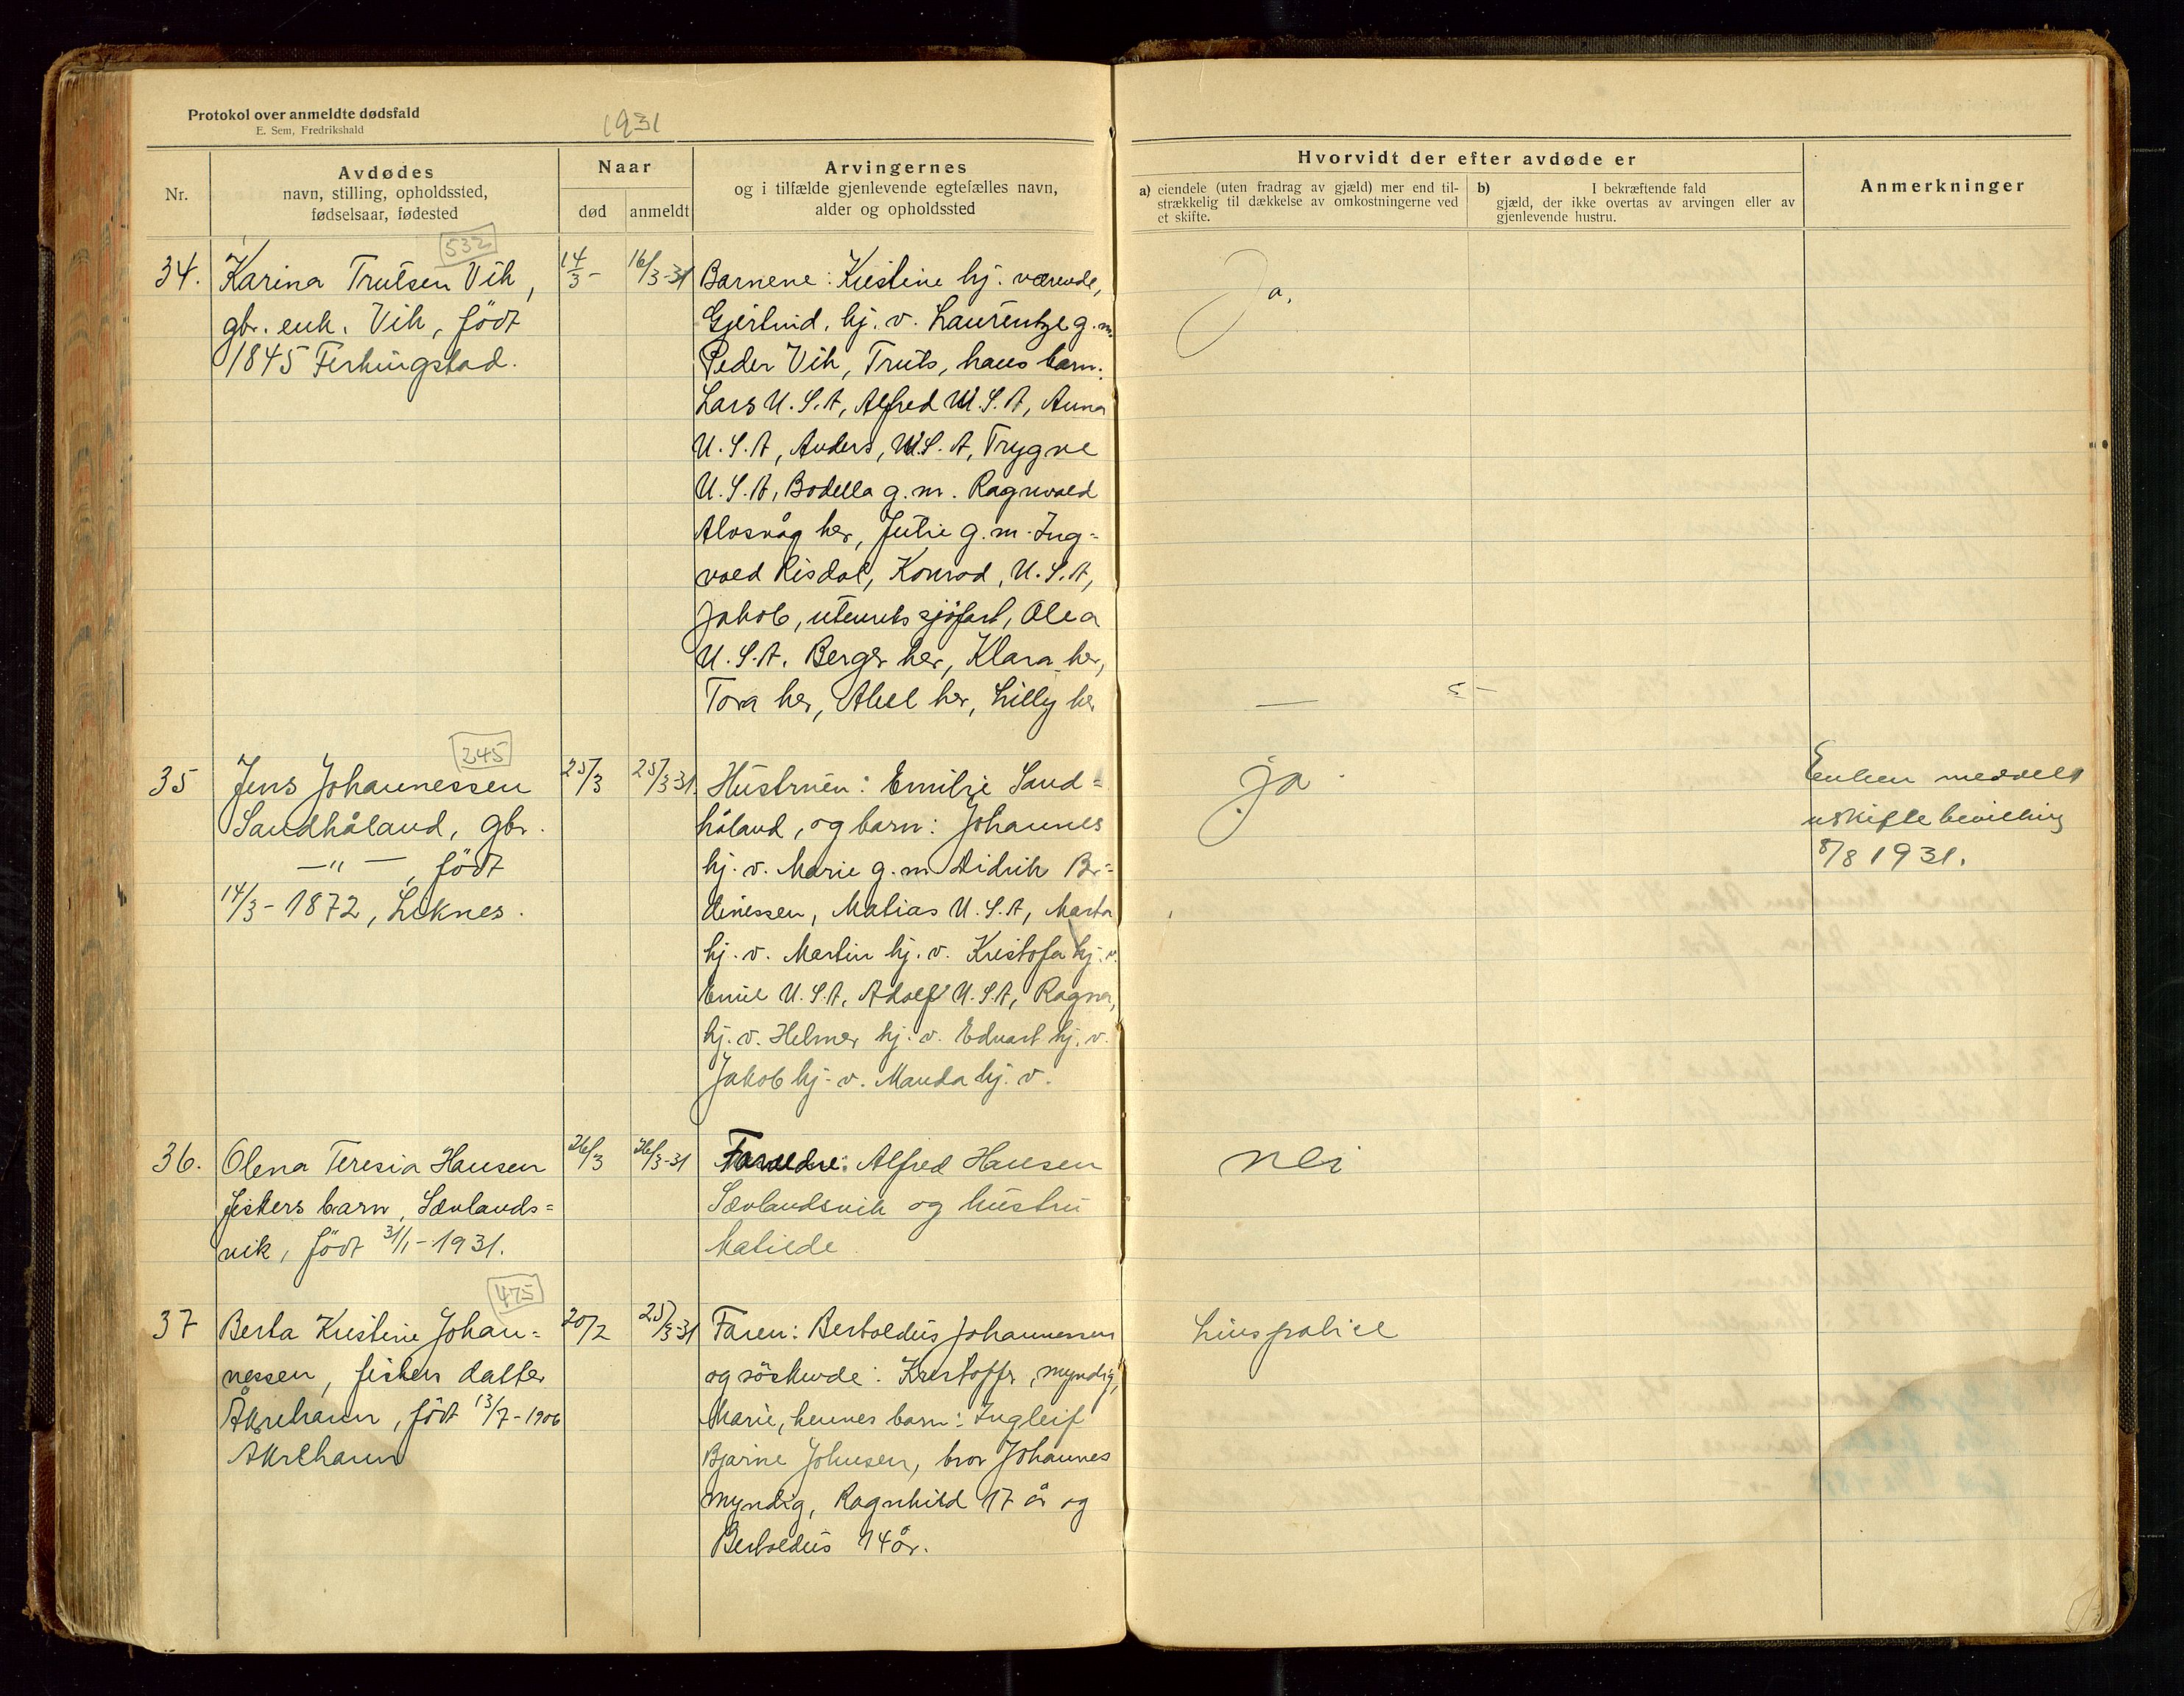 Protokol over anmeldte dødsfald
E. Sem, Fredrikshald
1931
Nr.
Avdødes
navn, stilling, opholdssted,
fødselsaar, fødested
Naar
død
anmeldt
Arvingernes
og i tilfælde gjenlevende egtefælles navn,
alder og opholdssted
Hvorvidt der efter avdøde er
a) eiendele (uten fradrag av gjæld) mer end til-
strækkelig til dækkelse av omkostningerne ved
et skifte.
b) I bekræftende fald
gjæld, der ikke overtas av arvingen eller av
gjenlevende hustru.
Anmerkninger
532
34.
Karina Trulsen Vik,
gbr. enk. Vik, född
1845 Ferkingstad.
14/3 -
16/3-31
Barnene: Kristine hj. værende,
Gjertrud, hj. v. Laurentze g. m.
Peder Vik, Truls, hans barn:
Lars U.S.A, Alfred U.S.A, Anna
U.S.A, Anders, U.S.A, Trygve
U.S.A, Bodella g. m. Ragnvald
Alosvåg her, Julie g. m. Ing=
vald Risdal, Konrad, U.S.A,
Jakob, utenriks sjöfart, Olea
U.S.A. Berger her, Klara her,
Tora her, Abel her, Lilly her
Ja.
245
35
Jens Johannessen
Sandhåland, gbr.
—"—, födt
14/3 - 1872, Liknes.
25/3
25/3-31.
Hustruen: Emilie Sand=
håland, og barn: Johannes
hj. v. Marie g. m. Didrik Br=
dinessen, Matias U.S.A, Marta
hj. v. Martin hj. v. Kristofa hj. v.
Emil U.S.A, Adolf U.S.A, Ragna,
hj. v. Helmer hj. v. Edvart hj. v.
Jakob hj. v. Manda hj. v.
ja
Enken meddelt
uskiftebevilling
8/8 1931.
36.
Olena Teresia Hansen
fiskers barn, Sævlands=
vik, födt 31/1 - 1931.
26/3
26/3-31
Foreldre: Alfred Hansen
Sævlandsvik og hustru
Matilde
nei
475
37
Berta Kristine Johan=
nessen, fiskers datter
Åkrehamn, födt 13/7-1906
Åkrehamn
20/2
25/3-31
Faren: Bertoldus Johannessen
og söskende: Kristoffer, myndig,
Marie, hennes barn: Ingleif
Bjarne Johnsen, bror Johannes
myndig, Ragnhild 17 år og
Bertoldus 14 år.
Livspolice